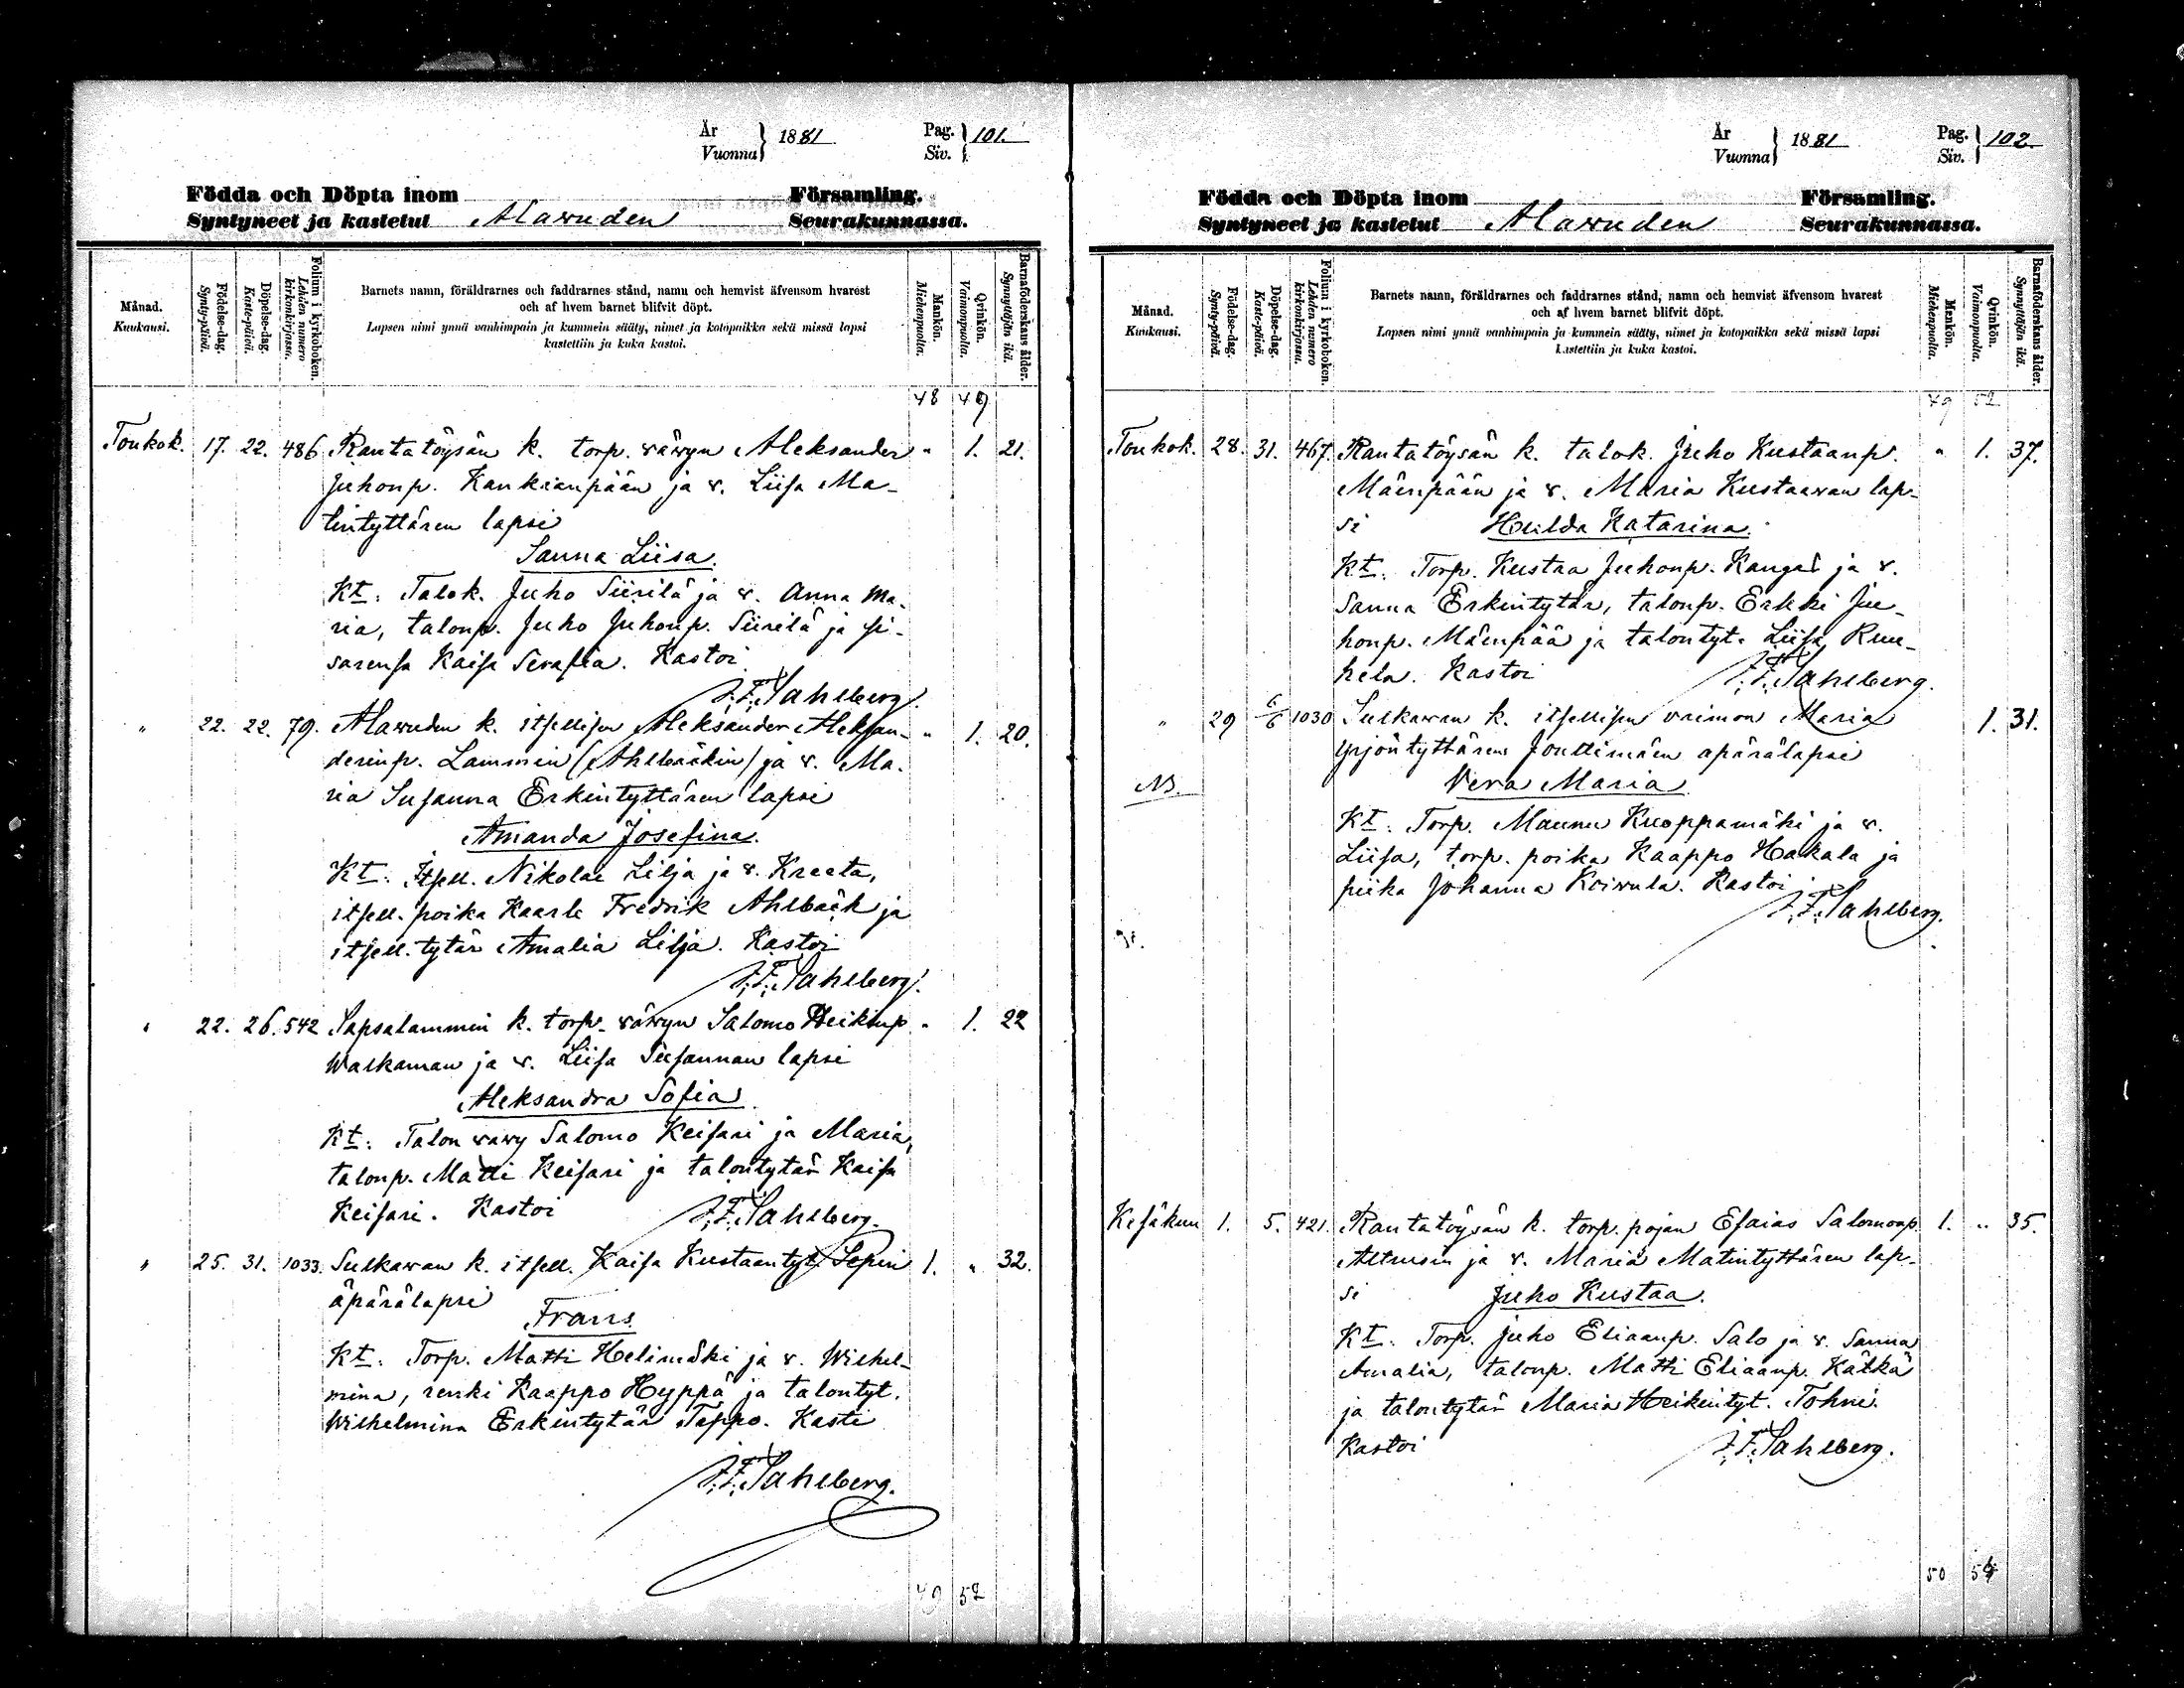 År
Vuonna } 1881
Pag.
Siv. } 101.
Födda och Döpta inom Församling.
Syntyneet ja kastetut Alawuden Seurakunnassa.
Månad.
Kuukausi.
Födelse-dag.
Synty-päivä.
Döpelse-dag.
Kaste-päivä.
Folium i kyrkoboken.
Lehden numero
kirkonkirjassa.
Barnets namn, föräldrarnes och faddrarnes stånd, namn och hemvist äfvensom hvarest
och af hvem barnet blifvit döpt.
Lapsen nimi ynnä vanhimpain ja kummein sääty, nimet ja kotopaikka sekä missä lapsi
kastettiin ja kuka kastoi.
Mankön.
Miehenpuolta.
Qvinkön.
Vaimonpuolta.
Barnaföderskans ålder.
Synnyttäjän ikä.
48 49
Toukok. 17. 22. 486 Rantatöysän k. torp. wäwyn Aleksander " 1. 21.
Juhonp. Kankianpään ja v. Liisa Ma-
tintyttären lapsi
Sanna Liisa.
Kt: Talok. Juho Siirilä ja v. Anna Ma-
ria, talonp. Juho Juhonp. Siirilä ja si-
sarensa Kaisa Serafia. Kastoi
J. F. Sahlberg.
" 22. 22. 79. Alawuden k. itsellisen Aleksander Aleksan- " 1. 20.
derinp. Lammin (Ahlbäckin) ja v. Ma-
ria Susanna Erkintyttären lapsi
Amanda Josefina.
Kt: Itsell. Nikolai Lilja ja v. Kreeta,
itsell. poika Kaarle Fredrik Ahlbäck ja
itsell. tytär Amalia Lilja. Kastoi
J. F. Sahlberg.
" 22. 26. 542 Sapsalammin k. torp. wäwyn Salomo Heikinp. " 1. 22
Walkaman ja v. Liisa Susannan lapsi
Aleksandra Sofia.
Kt: Talon wäwy Salomo Keisari ja Maria,
talonp. Matti Keisari ja talontytär Kaisa
Keisari. Kastoi J. F. Sahlberg.
" 25. 31. 1033. Sulkawan k. itsell. Kaisa Kustaantyt. Sepin 1. " 32.
äpärälapsi
Frans.
Kt: Torp. Matti Helimäki ja v. Wilhel-
mina, renki Kaappo Hyppä ja talontyt.
Wilhelmina Erkintytär Tappo. Kasti
J. F. Sahlberg.
49 52
År
Vuonna } 1881
Pag.
Siv. } 102.
Födda och Döpta inom Församling.
Syntyneet ja kastetut Alawuden Seurakunnassa.
Månad.
Kuukausi.
Födelse-dag.
Synty-päivä.
Döpelse-dag.
Kaste-päivä.
Folium i kyrkoboken.
Lehden numero
kirkonkirjassa.
Barnets namn, föräldrarnes och faddrarnes stånd, namn och hemvist äfvensom hvarest
och af hvem barnet blifvit döpt.
Lapsen nimi ynnä vanhimpain ja kummein sääty, nimet ja kotopaikka sekä missä lapsi
kastettiin ja kuka kastoi.
Mankön.
Miehenpuolta.
Qvinkön.
Vaimonpuolta.
Barnaföderskans ålder.
Synnyttäjän ikä.
49 52
Toukok. 28. 31. 467. Rantatöysän k. talok. Juho Kustaanp. " 1. 37.
Mäenpään ja v. Maria Kustaawan lap-
si Hulda Katarina.
Kt: Torp. Kustaa Juhonp. Kangas ja v.
Sanna Erkintytär, talonp. Erkki Ju-
honp. Mäenpää ja talontyt. Liisa Ruu-
hela. Kastoi J. F. Sahlberg.
" 29 6/6 1030 Sulkawan k. itsellisen vaimon Maria 1. 31.
Yrjöntyttären Jouttimäen apärälapsi
NB. Vera Maria.
Kt: Torp. Maunu Kuoppamäki ja v.
Liisa, torp. poika Kaappo Hakala ja
piika Johanna Koiwula. Kastoi
J. F. Sahlberg.
Kesäkuu 1. 5. 421. Rantatöysän k. torp. pojan Esaias Salomonp. 1. " 35.
Altrusin ja v. Maria Matintyttären lap-
si Juho Kustaa.
Kt: Torp. Juho Eliaanp. Salo ja v. Sanna
Amalia, talonp. Matti Eliaanp. Kätkä
ja talontytär Maria Heikintyt. Tohni.
Kastoi J. F. Sahlberg.
50 54